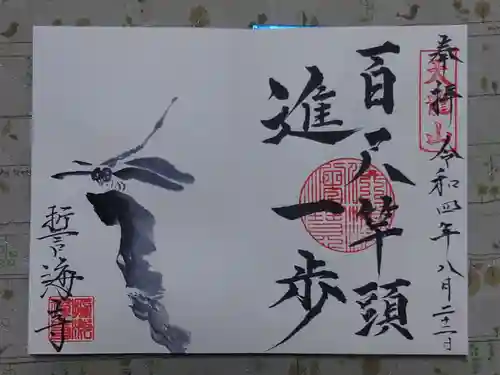 奉拝 令和四年八月二十二日
百尺竿頭
進一歩
誓海寺